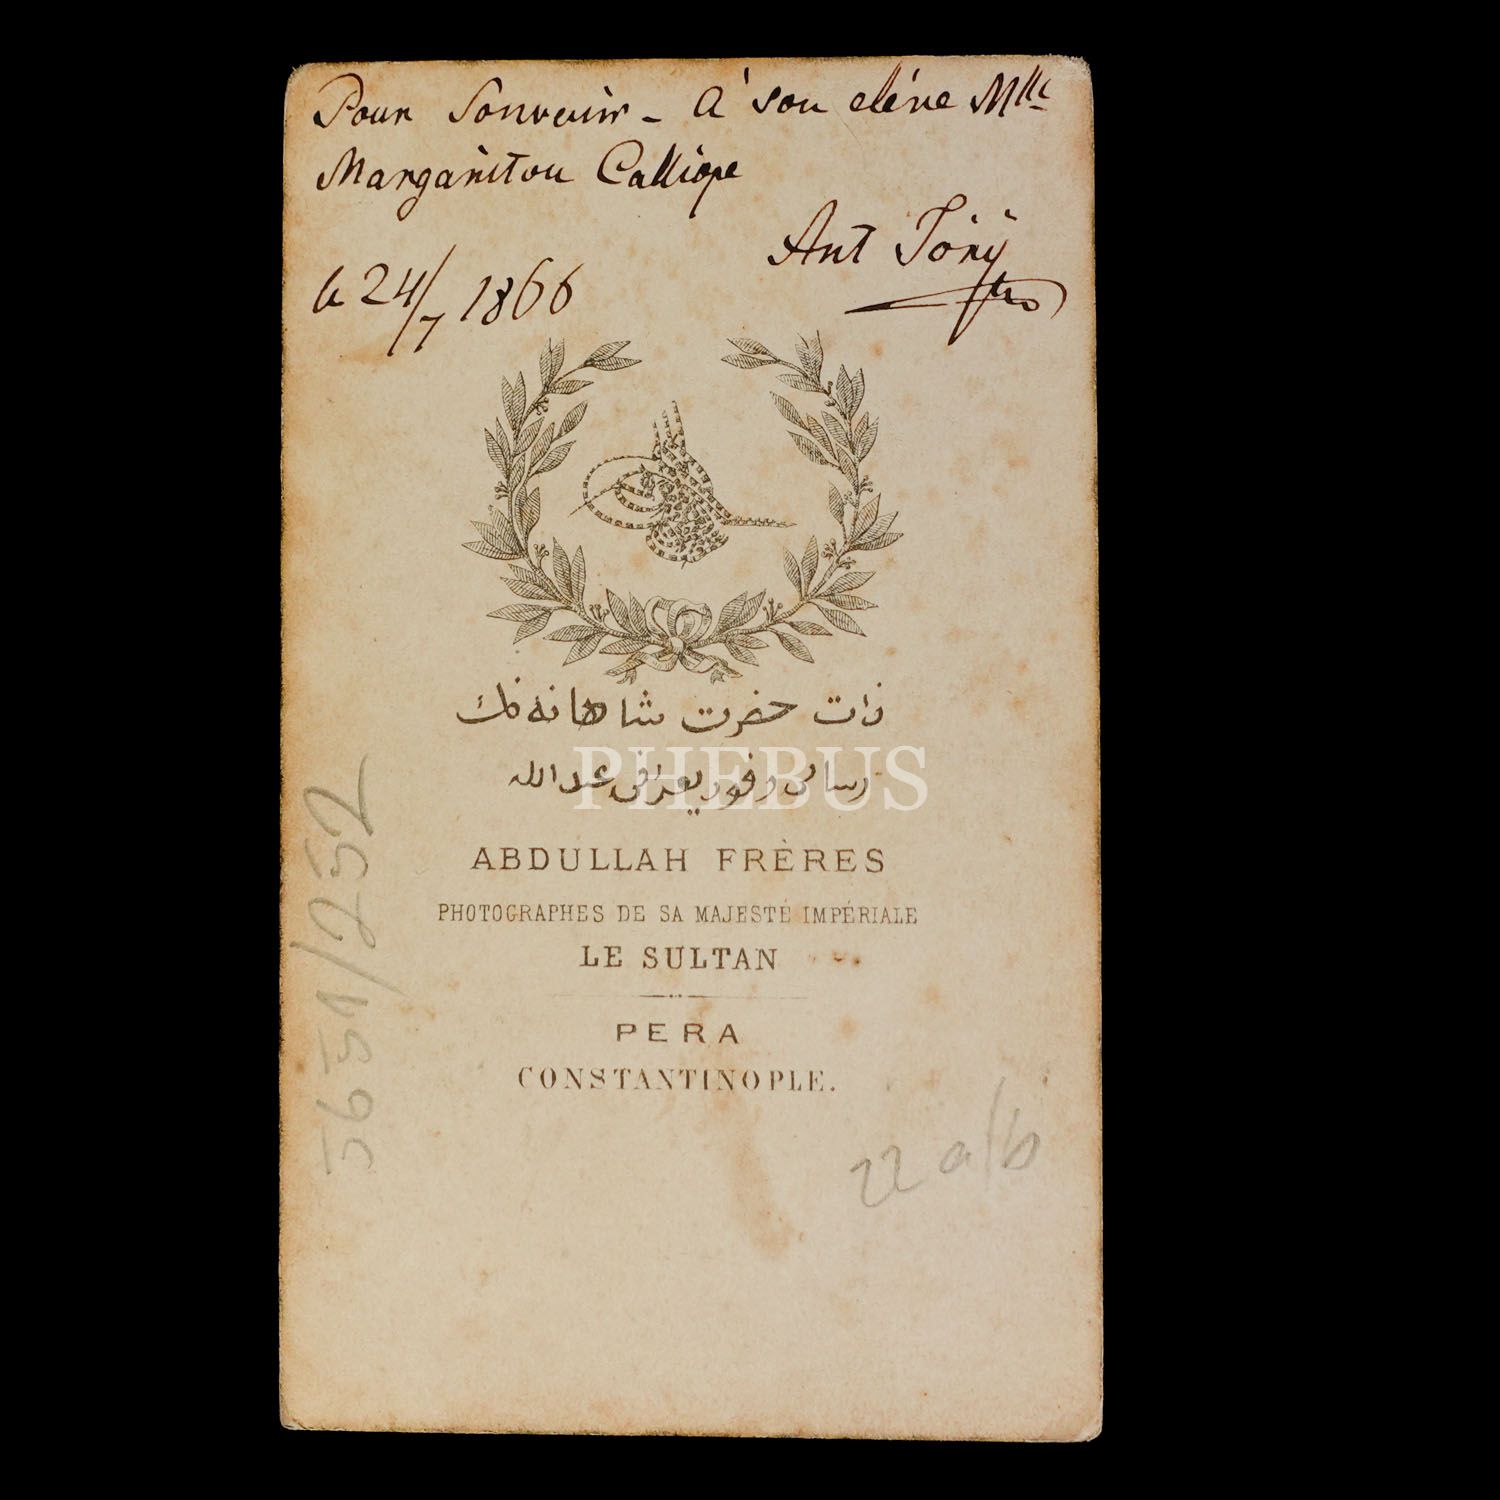 Pour Souvenir - A son elève Mlle
Margaritou Calliope
Ant Tóry
le 24/7 1866
ذات حضرت شاهانه نك
رسامى و فوتوغرافى عبدالله
PHEBUS
ABDULLAH FRÈRES
PHOTOGRAPHES DE SA MAJESTÉ IMPÉRIALE
LE SULTAN
PERA
CONSTANTINOPLE.
5651/252
22 a/b